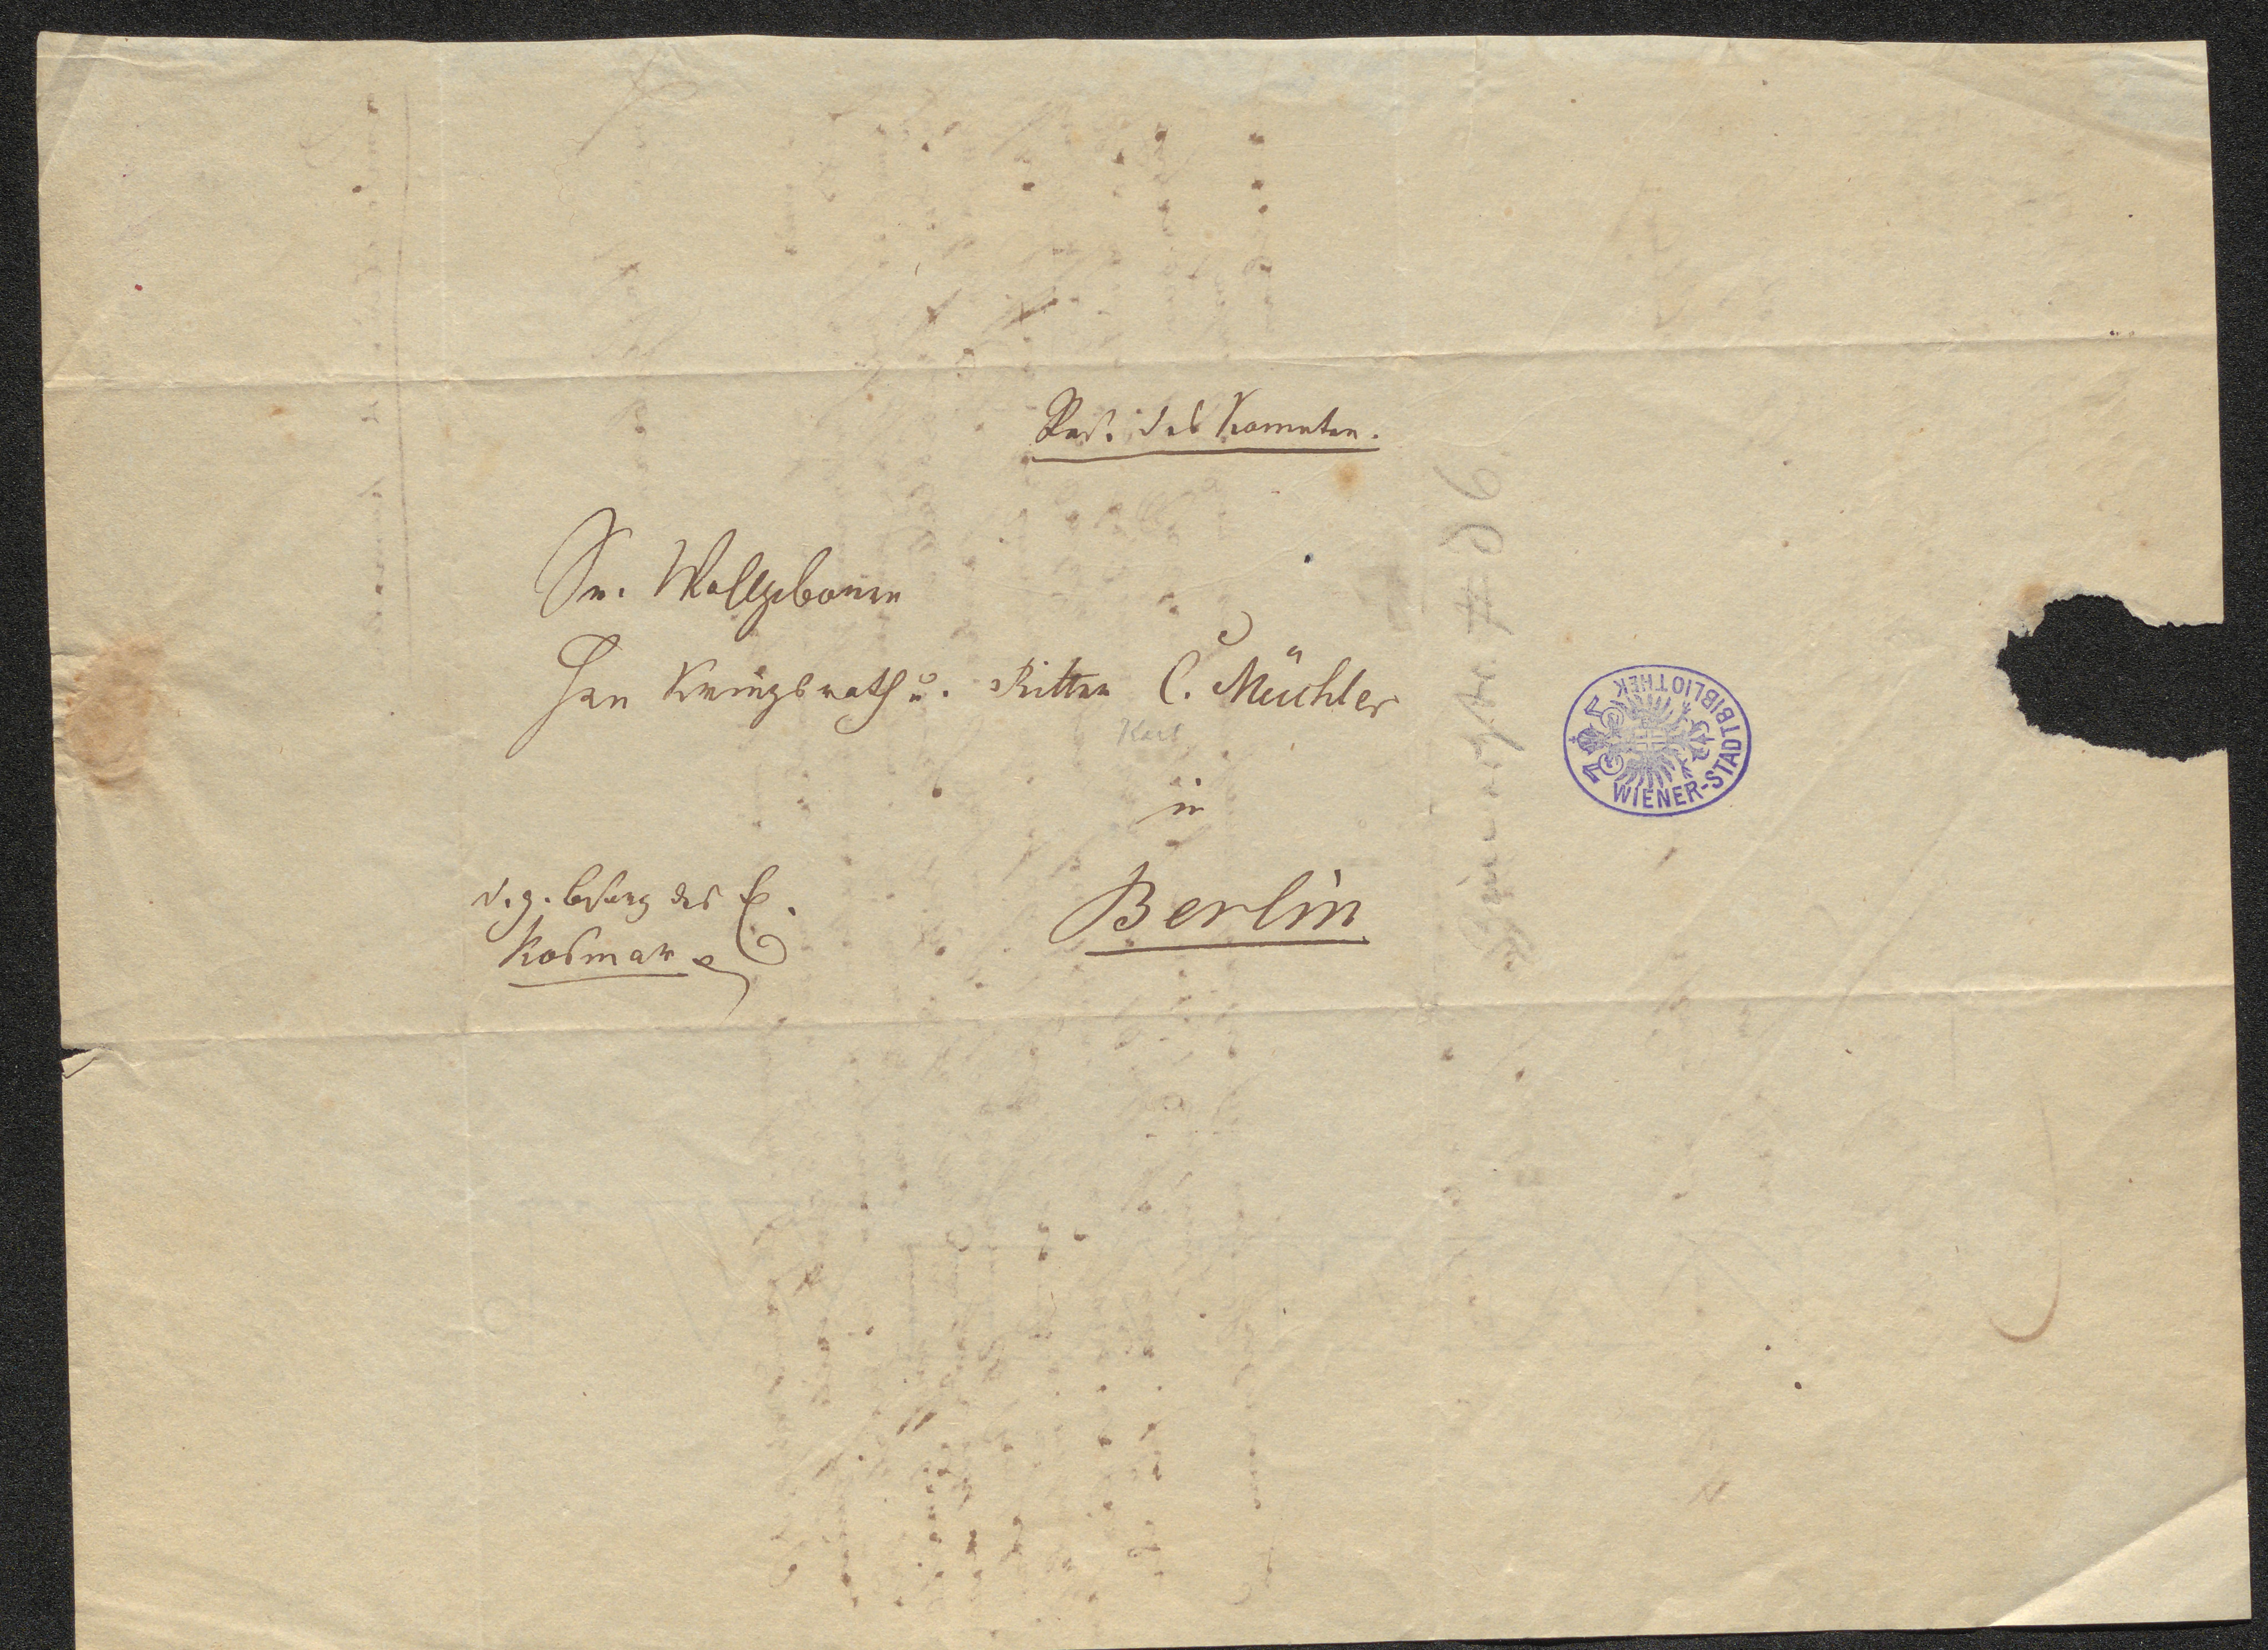 Red. des Kometen.
Sr. Wollgeboren
Herr Kriegsrath u. Ritter C. Müchler
Karl
in
Berlin
d. g. besorg des H.
Kosmar
WIENER-STADTBIBLIOTHEK